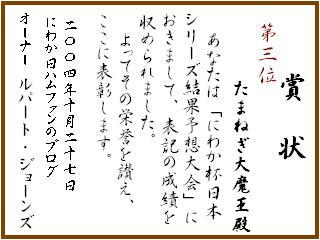 賞状
第三位
たまねぎ大魔王殿
あなたは「にわか杯日本
シリーズ結果予想大会」に
おきまして、表記の成績を
収められました。
よってその栄誉を讃え、
ここに表彰します。
二〇〇四年十月二十七日
にわか日ハムファンのブログ
オーナー ルパート・ジョーンズ